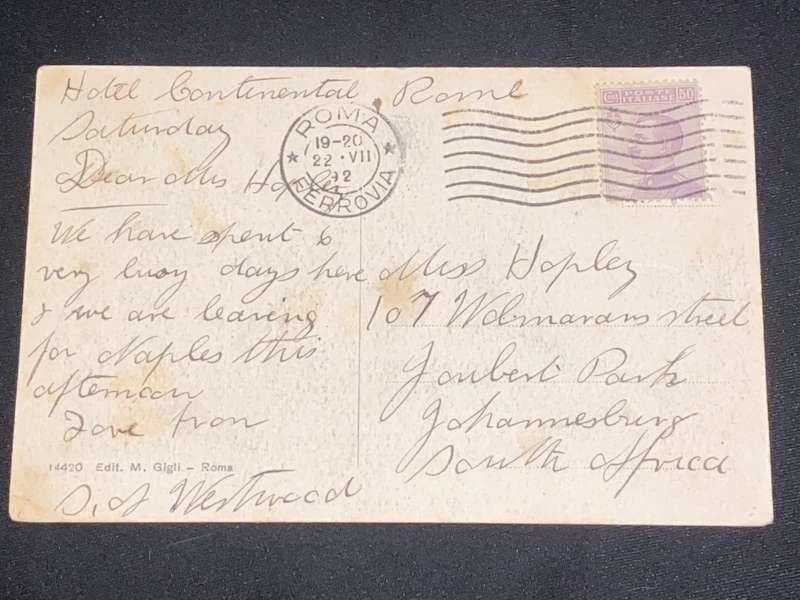 Hotel Continental, Rome
Saturday
Dear Miss Hopley
We have spent 6
very busy days here
& we are leaving
for Naples this
afternoon
Love from
S. Westwood
14420 Edit. M. Gigli - Roma
ROMA
19-20
22 · VII
FERROVIA
POSTE
ITALIANE
50
Miss Hopley
107 Wolmarans street
Joubert Park
Johannesburg
South Africa